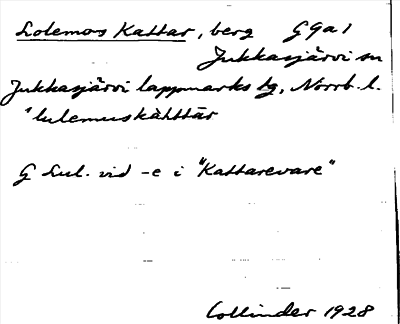 Lolemos Kattar, berg G9a1
Jukkasjärvi sn
Jukkasjärvi lappmarks tg, Norrb. l.
lulemuskähttār
G Lul. vid -e i "Kattarevare"
Collinder 1928